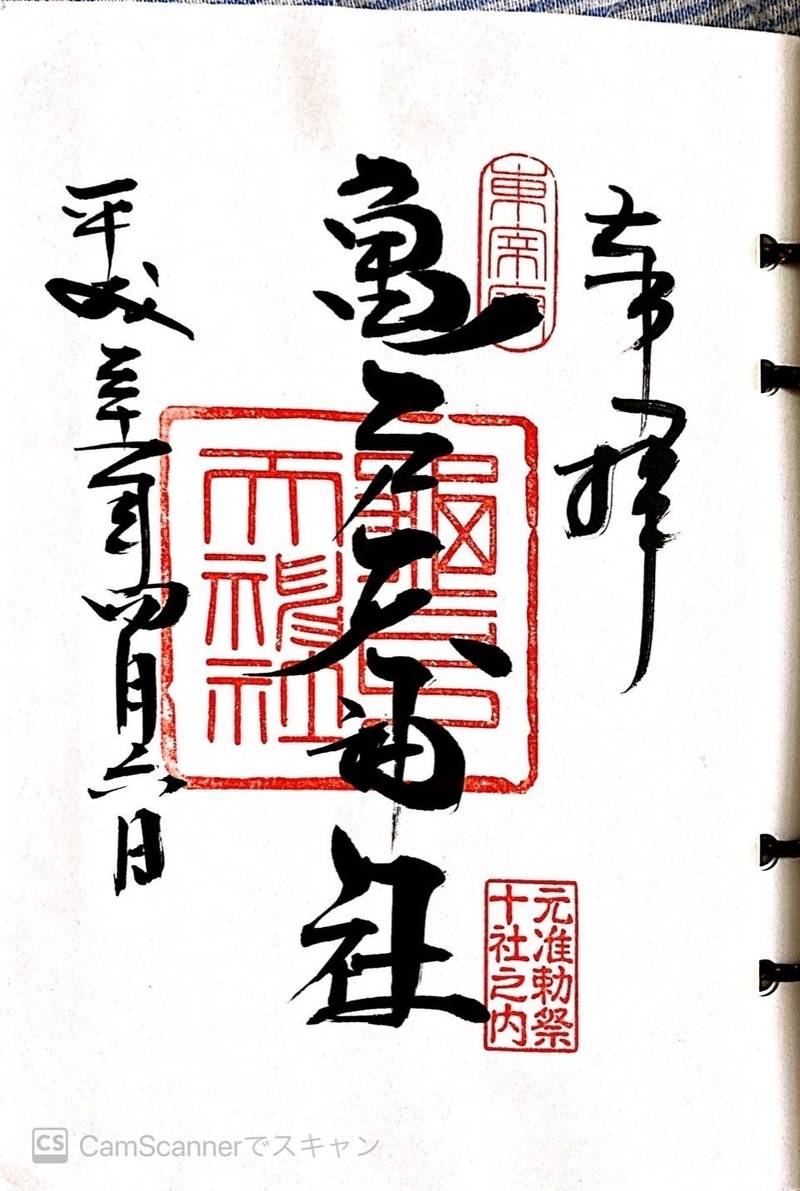 奉拝
東宰府
亀戸天神社
龜戸
天神社
元准勅祭
十社之内
平成三十一年四月六日
CS CamScannerでスキャン